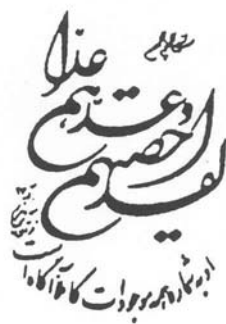 لقد احصیهم
وعدهم
عدا
او به شماره همه موجودات کاملا آگاه است